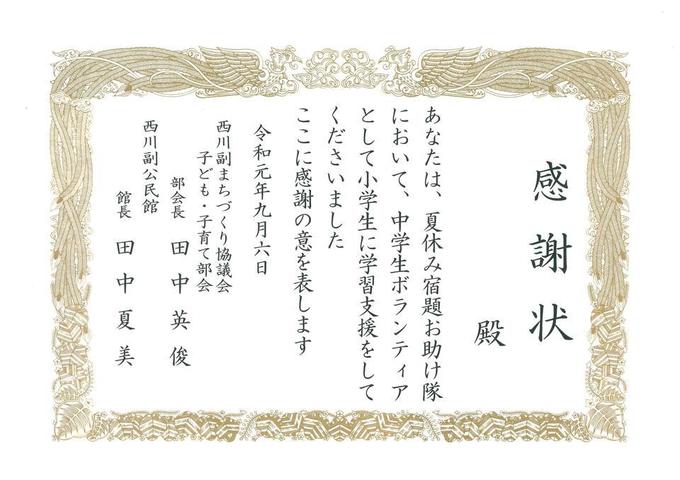 感謝状
殿
あなたは、夏休み宿題お助け隊
において、中学生ボランティア
として小学生に学習支援をして
くださいました
ここに感謝の意を表します
令和元年九月六日
西川副まちづくり協議会
子ども・子育て部会
部会長 田中英俊
西川副公民館
館長 田中夏美